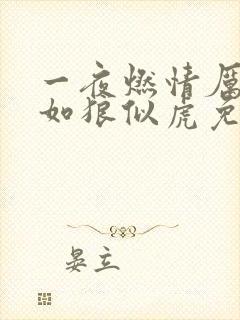 一夜燃情厉
如狼似虎免
晏立